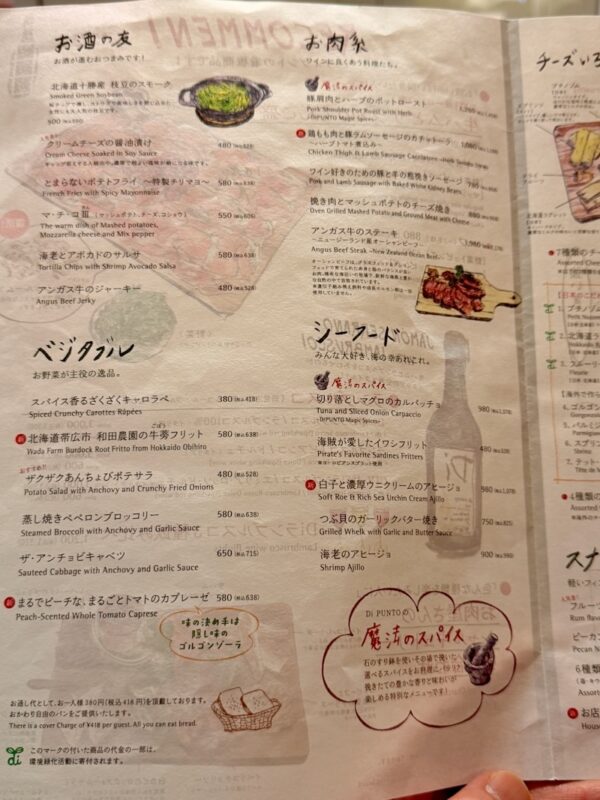 お酒の友
お酒が進むおつまみです！
北海道十勝産 枝豆のスモーク
Smoked Green Soybean
500 (税込550)
クリームチーズの醤油漬け 480 (税込528)
Cream Cheese Soaked in Soy Sauce
とまらないポテトフライ ～特製チリマヨ～ 580 (税込638)
French Fries with Spicy Mayonnaise
マ・チ・コ組 (マッシュポテト、チーズ、コショウ) 550 (税込605)
The warm dish of Mashed potatoes,
Mozzarella cheese and Mix pepper
海老とアボカドのサルサ 580 (税込638)
Tortilla Chips with Shrimp Avocado Salsa
アンガス牛のジャーキー 480 (税込528)
Angus Beef Jerky
ベジタブル
お野菜が主役の逸品。
スパイス香るざくざくキャロラペ 380 (税込418)
Spiced Crunchy Carottes Râpées
新 北海道帯広市 和田農園の牛蒡フリット 580 (税込638)
Wada Farm Burdock Root Fritto from Hokkaido Obihiro
おすすめ!!
ザクザクあんちょびポテサラ 480 (税込528)
Potato Salad with Anchovy and Crunchy Fried Onions
蒸し焼きペペロンブロッコリー 580 (税込638)
Steamed Broccoli with Anchovy and Garlic Sauce
ザ・アンチョビキャベツ 650 (税込715)
Sauteed Cabbage with Anchovy and Garlic Sauce
新 まるでピーチな、まるごとトマトのカプレーゼ 580 (税込638)
Peach-Scented Whole Tomato Caprese
味の決め手は
隠し味の
ゴルゴンゾーラ
お通し代として、お一人様380円(税込418円)を頂戴しております。
おかわり自由のパンをご提供いたします。
There is a cover Charge of ¥418 per guest. All you can eat bread.
di このマークの付いた商品の代金の一部は、
環境緑化活動に寄付されます。
お肉系
ワインに良くあう料理たち。
魔法のスパイス
豚肩肉とハーブのポットロースト
Pork Shoulder Pot Roast with Herb
~DiPUNTO Magic Spices~
新 鶏もも肉と豚ラムソーセージのカチャトーラ
~ハーブトマト煮込み~
Chicken Thigh & Lamb Sausage Cacciatore
ワイン好きのための豚と牛の粗挽きソーセージ
Pork and Lamb Sausage with Baked White Kidney Beans
挽き肉とマッシュポテトのチーズ焼き
Oven Grilled Mashed Potato and Ground Meat with Cheese
アンガス牛のステーキ
~ニュージーランド産オーシャンビーフ~
Angus Beef Steak ~New Zealand Ocean Beef~
シーフード
みんな大好き、海の幸あれこれ。
魔法のスパイス
切り落としマグロのカルパッチョ 980 (税込1,078)
Tuna and Sliced Onion Carpaccio
~DiPUNTO Magic Spices~
海賊が愛したイワシフリット 480 (税込528)
Pirate's Favorite Sardines Fritters
新 白子と濃厚ウニクリームのアヒージョ 980 (税込1,078)
Soft Roe & Rich Sea Urchin Cream Ajillo
つぶ貝のガーリックバター焼き 750 (税込825)
Grilled Whelk with Garlic and Butter Sauce
海老のアヒージョ 900 (税込990)
Shrimp Ajillo
Di PUNTOの
魔法のスパイス
石のすり鉢を使いその場で挽いた
選べるスパイスをお料理に
挽きたての豊かな香りと味わいが
楽しめる特別なメニューです！
チーズいろ
7種類の
Assorted
4種類の
Assorted
スナ
軽いフィン
フルー
Rum Rave
ピーカン
Pecan N
6種類
Assor
新 お店
House